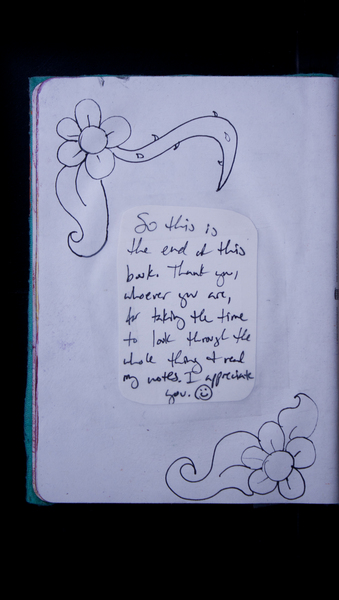 So this is
the end of this
book. Thank you,
whoever you are,
for taking the time
to look through the
whole thing & read
my notes. I appreciate
you. ☺